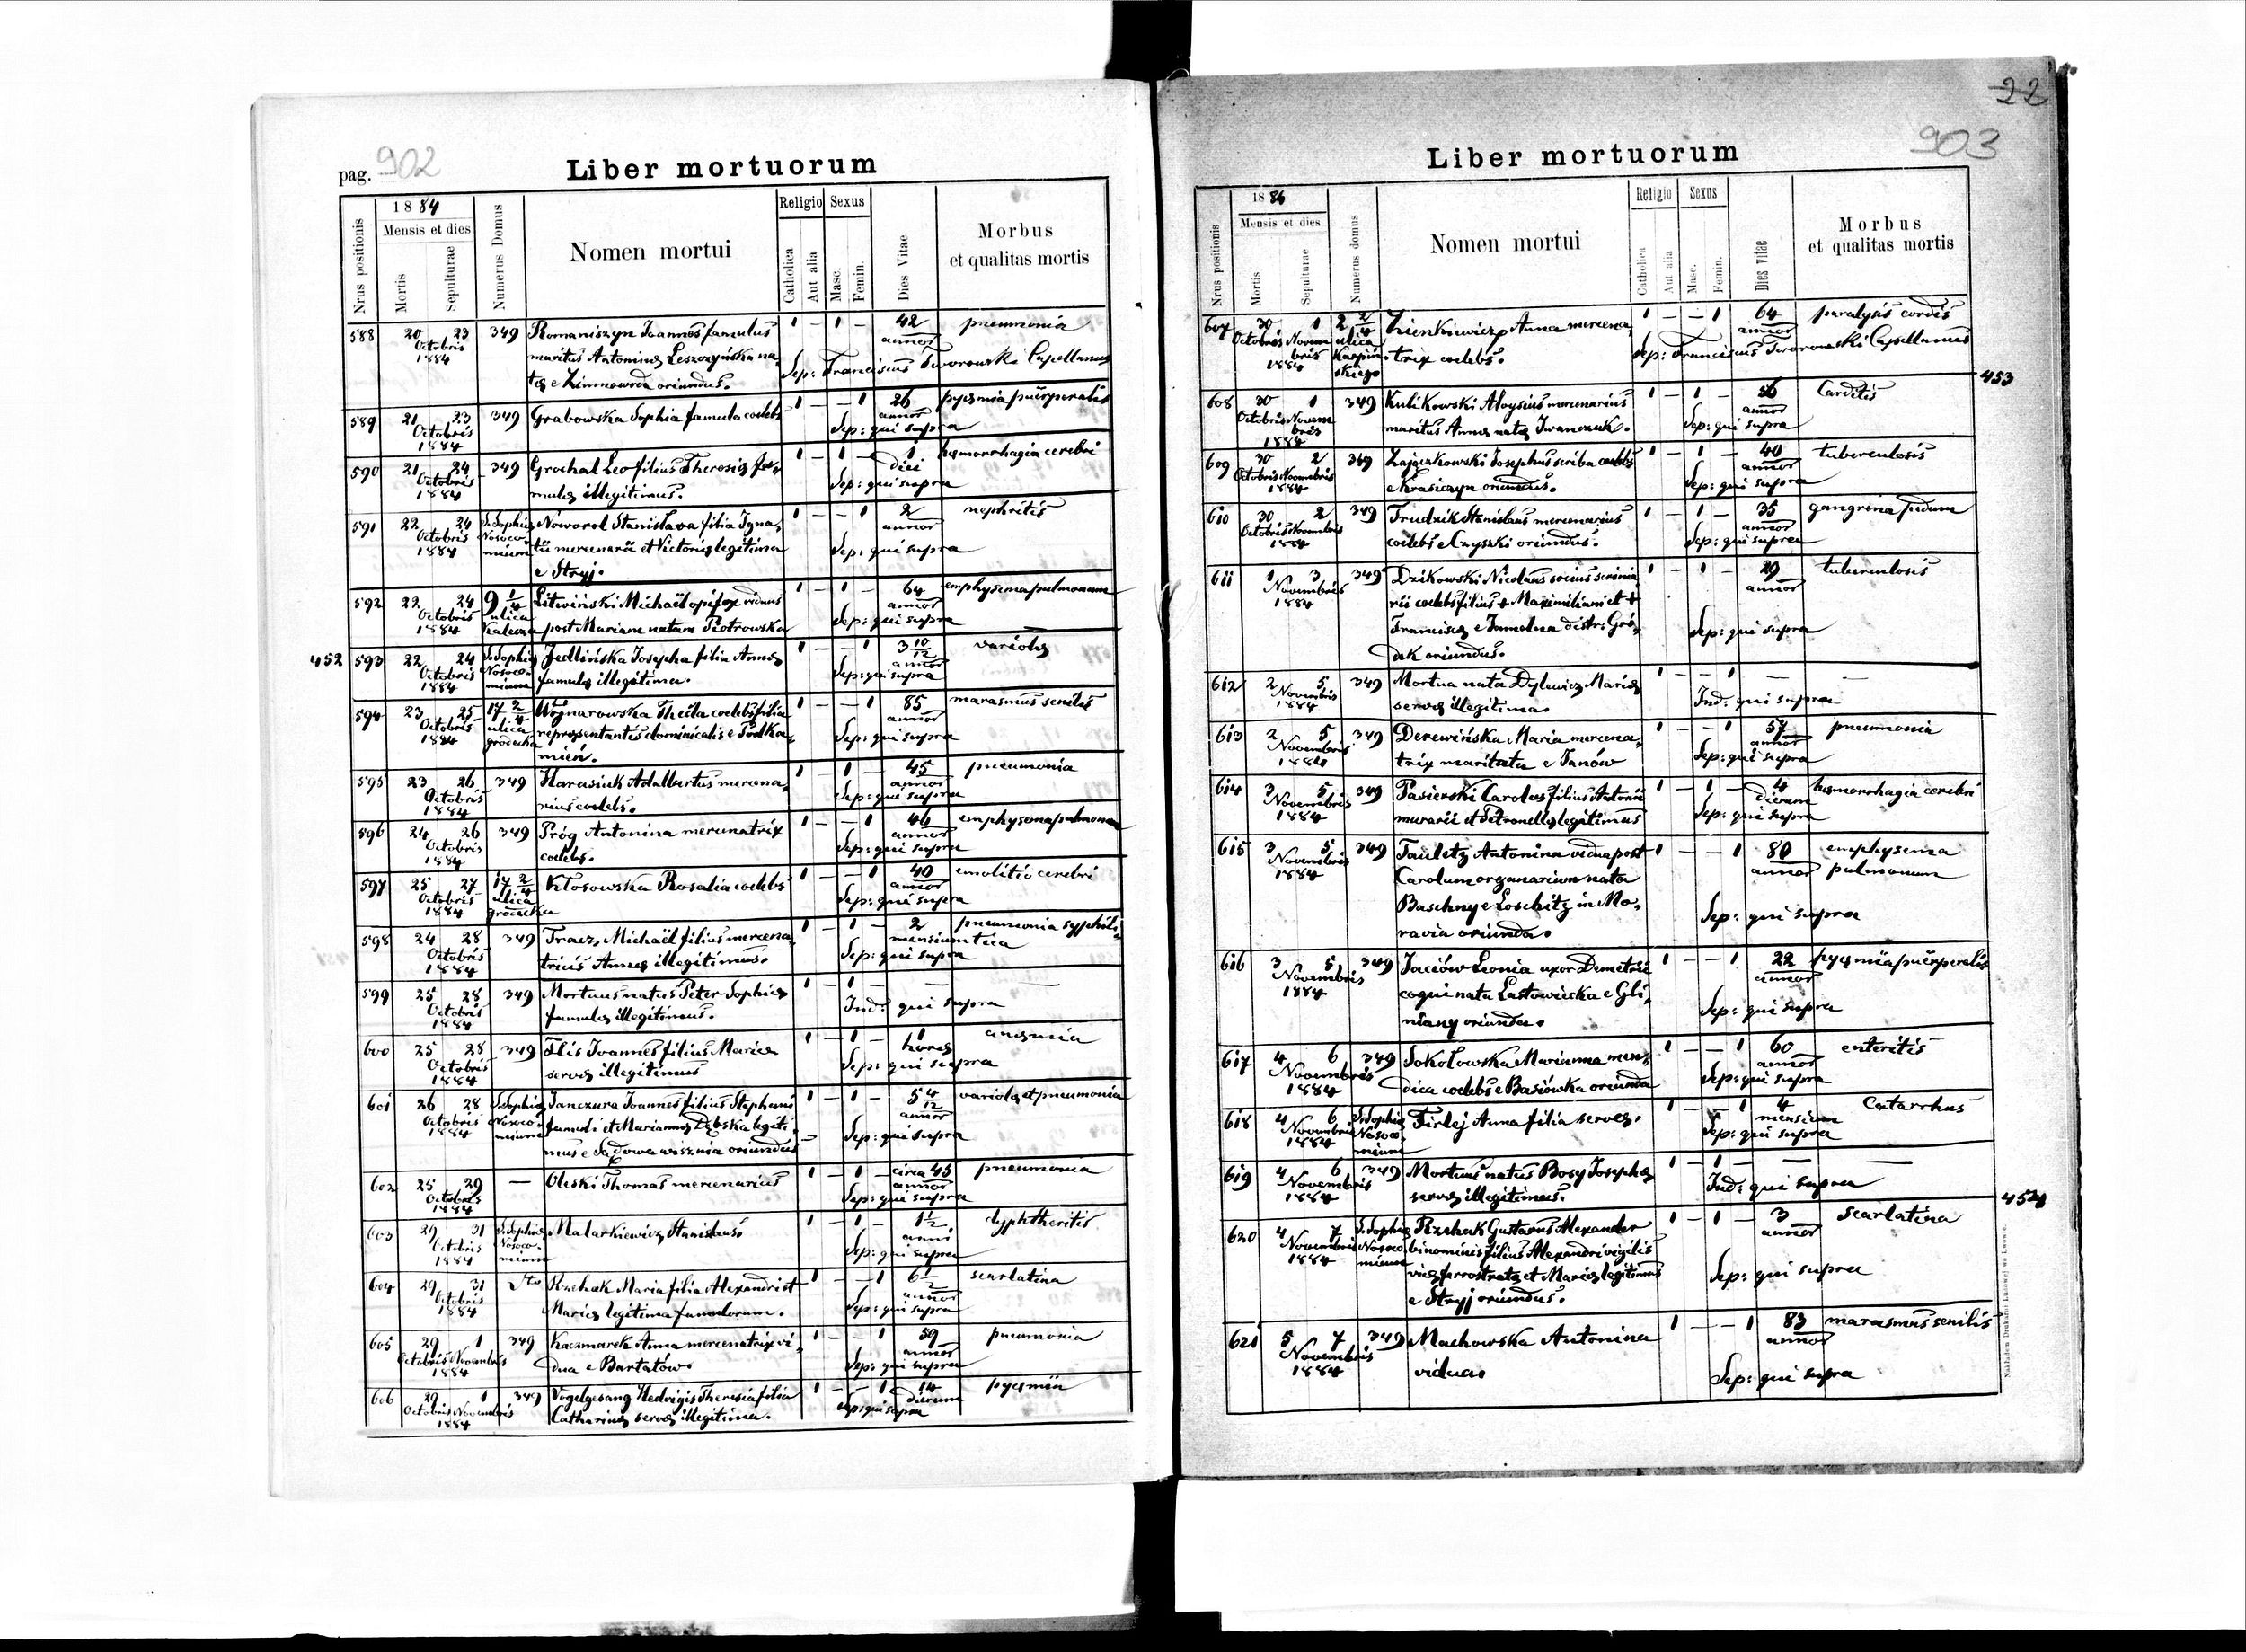 pag. 902
Liber mortuorum
Nrus positionis
1884
Mensis et dies
Mortis
Sepulturae
Numerus Domus
Nomen mortui
Religio
Catholica
Aut alia
Sexus
Masc.
Femin.
Dies Vitae
Morbus
et qualitas mortis
588 20 23 349 Romaniszyn Joannes famulus 1 – 1 – 42 pneumonia
Octobris maritus Antoninæ Leszczyńska na annor
1884 tæ e Zimnowoda oriundus. Sep: Franciscus Tworowski Capellanus
589 21 23 349 Grabowska Sophia famula coelebs 1 – – 1 26 pyæmia puerperalis
Octobris annor
1884 Sep: qui supra
590 21 24 349 Grochal Leo filius Theresiæ fa- 1 – 1 – 1 hæmorrhagia cerebri
Octobris mulæ illegitimus. diei
1884 Sep: qui supra
591 22 24 S. Sophiæ Noworol Stanislava filia Igna- 1 – – 1 2 nephritis
Octobris Nosoco- tii mercenarii et Victoriæ legitima annor
1884 mium e Stryj. Sep: qui supra
592 22 24 9 1/4 Litwiński Michaël opifex viduus 1 – 1 – 64 emphysema pulmonum
Octobris ulica post Mariam natam Piotrowska annor
1884 Kalecza Sep: qui supra
452 593 22 24 S. Sophiæ Jedlińska Josepha filia Annæ 1 – – 1 3 10/12 variolæ
Octobris Nosoco- famulæ illegitima. annor
1884 mium Sep: qui supra
594 23 25 17 2/4 Wojnarowska Thecla coelebs filia 1 – – 1 85 marasmus senilis
Octobris ulica repræsentantis dominicalis e Podka- annor
1884 grodecka mień. Sep: qui supra
595 23 26 349 Harasiuk Adalbertus mercena- 1 – 1 – 45 pneumonia
Octobris rius coelebs. annor
1884 Sep: qui supra
596 24 26 349 Próg Antonina mercenatrix 1 – – 1 46 emphysema pulmonum
Octobris coelebs. annor
1884 Sep: qui supra
597 25 27 17 2/4 Kłosowska Rosalia coelebs 1 – – 1 40 emolitio cerebri
Octobris ulica annor
1884 grodecka Sep: qui supra
598 24 28 349 Tracz Michaël filius mercena- 1 – 1 – 2 pneumonia syphili-
Octobris tricis Annæ illegitimus. mensium tica
1884 Sep: qui supra
599 25 28 349 Mortuus natus Peter Sophiæ 1 – 1 – — —
Octobris famulæ illegitimus. Ind: qui supra
1884
600 25 28 349 Flis Joannes filius Mariæ 1 – 1 – 1 anæmia
Octobris servæ illegitimus horæ
1884 Sep: qui supra
601 26 28 S. Sophiæ Janczura Joannes filius Stephani 1 – 1 – 5 4/12 variolæ et pneumonia
Octobris Nosoco- famuli et Mariannæ Dębska legiti- annor
1884 mium mus e Sądowa wisznia oriundus Sep: qui supra
602 25 29 — Oleski Thomas mercenarius 1 – 1 – circa 45 pneumonia
Octobris annor
1884 Sep: qui supra
603 29 31 S. Sophiæ Malarkiewicz Stanislaus 1 – 1 – 1 1/2 dyphtheritis
Octobris Nosoco- anni
1884 mium Sep: qui supra
604 29 31 Dto Rzehak Maria filia Alexandri et 1 – – 1 6 1/2 scarlatina
Octobris Mariæ legitima famulorum. annor
1884 Sep: qui supra
605 29 1 349 Kaczmarek Anna mercenatrix vi- 1 – – 1 59 pneumonia
Octobris Novembris dua e Bartatów. annor
1884 Sep: qui supra
606 29 1 349 Vogelgesang Hedvigis Theresia filia 1 – – 1 14 pyæmia
Octobris Novembris Catharinæ servæ illegitima. dierum
1884 Sep: qui supra
22
903
Liber mortuorum
Nrus positionis
1884
Mensis et dies
Mortis
Sepulturae
Numerus domus
Nomen mortui
Religio
Catholica
Aut alia
Sexus
Masc.
Femin.
Dies Vitae
Morbus
et qualitas mortis
607 30 1 2 2/4 Zienkiewicz Anna mercena- 1 – – 1 64 paralysis cordis
Octobris Novem ulica trix coelebs. annor
bris Karpiń- Sep: Franciscus Tworowski Capellanus
1884 skiego
453
608 30 1 349 Kulikowski Aloysius mercenarius 1 – 1 – 56 Carditis
Octobris Novem maritus Annæ natæ Iwanczuk. annor
bris Sep: qui supra
1884
609 30 2 349 Zajączkowski Josephus scriba coelebs 1 – 1 – 40 tuberculosis
Octobris Novembris e Krasiczyn oriundus. annor
1884 Sep: qui supra
610 30 2 349 Trudzik Stanislaus mercenarius 1 – 1 – 35 gangrena pedum
Octobris Novembris coelebs e Czyszki oriundus. annor
1884 Sep: qui supra
611 1 3 349 Dzikowski Nicolaus socius scrinia- 1 – 1 – 29 tuberculosis
Novembris rii coelebs filius + Maximiliani et + annor
1884 Franciscæ e Jamelna distr: Gró-
dek oriundus. Sep: qui supra
612 2 5 349 Mortua nata Dylewicz Mariæ 1 – – 1 — —
Novembris servæ illegitima. Ind: qui supra
1884
613 2 5 349 Derewińska Maria mercena- 1 – – 1 57 pneumonia
Novembris trix maritata e Janów annor
1884 Sep: qui supra
614 3 5 349 Pasierski Carolus filius Antonii 1 – 1 – 4 hæmorrhagia cerebri
Novembris murarii et Petronellæ legitimus dierum
1884 Sep: qui supra
615 3 5 349 Tauletz Antonina vidua post 1 – – 1 80 emphysema
Novembris Carolum organarium nata annor pulmonum
1884 Baschny e Loschitz in Mo-
ravia oriunda. Sep: qui supra
616 3 5 349 Jaciów Leonia uxor Demetrii 1 – – 1 22 pyæmia puerperalis
Novembris coqui nata Łastowiecka e Gli- annor
1884 niany oriunda. Sep: qui supra
617 4 6 349 Sokołowska Marianna men- 1 – – 1 60 enteritis
Novembris dica coelebs e Basiówka oriunda annor
1884 Sep: qui supra
618 4 6 S. Sophiæ Firlej Anna filia servæ. 1 – 1 4 Catarrhus
Novembris Nosoco- mensium
1884 mium Sep: qui supra
619 4 6 349 Mortuus natus Bosy Josephæ 1 – 1 – — —
Novembris servæ illegitimus. Ind: qui supra
1884
454
620 4 7 S. Sophiæ Rzehak Gustavus Alexander 1 – 1 – 3 scarlatina
Novembris Nosoco- binominis filius Alexandri vigilis annor
1884 mium viæ ferrostratæ et Mariæ legitimus
e Stryj oriundus. Sep: qui supra
621 5 7 349 Machowska Antonina 1 – – 1 83 marasmus senilis
Novembris vidua. annor
1884 Sep: qui supra
Nakładem Drukarni Ludowej we Lwowie.